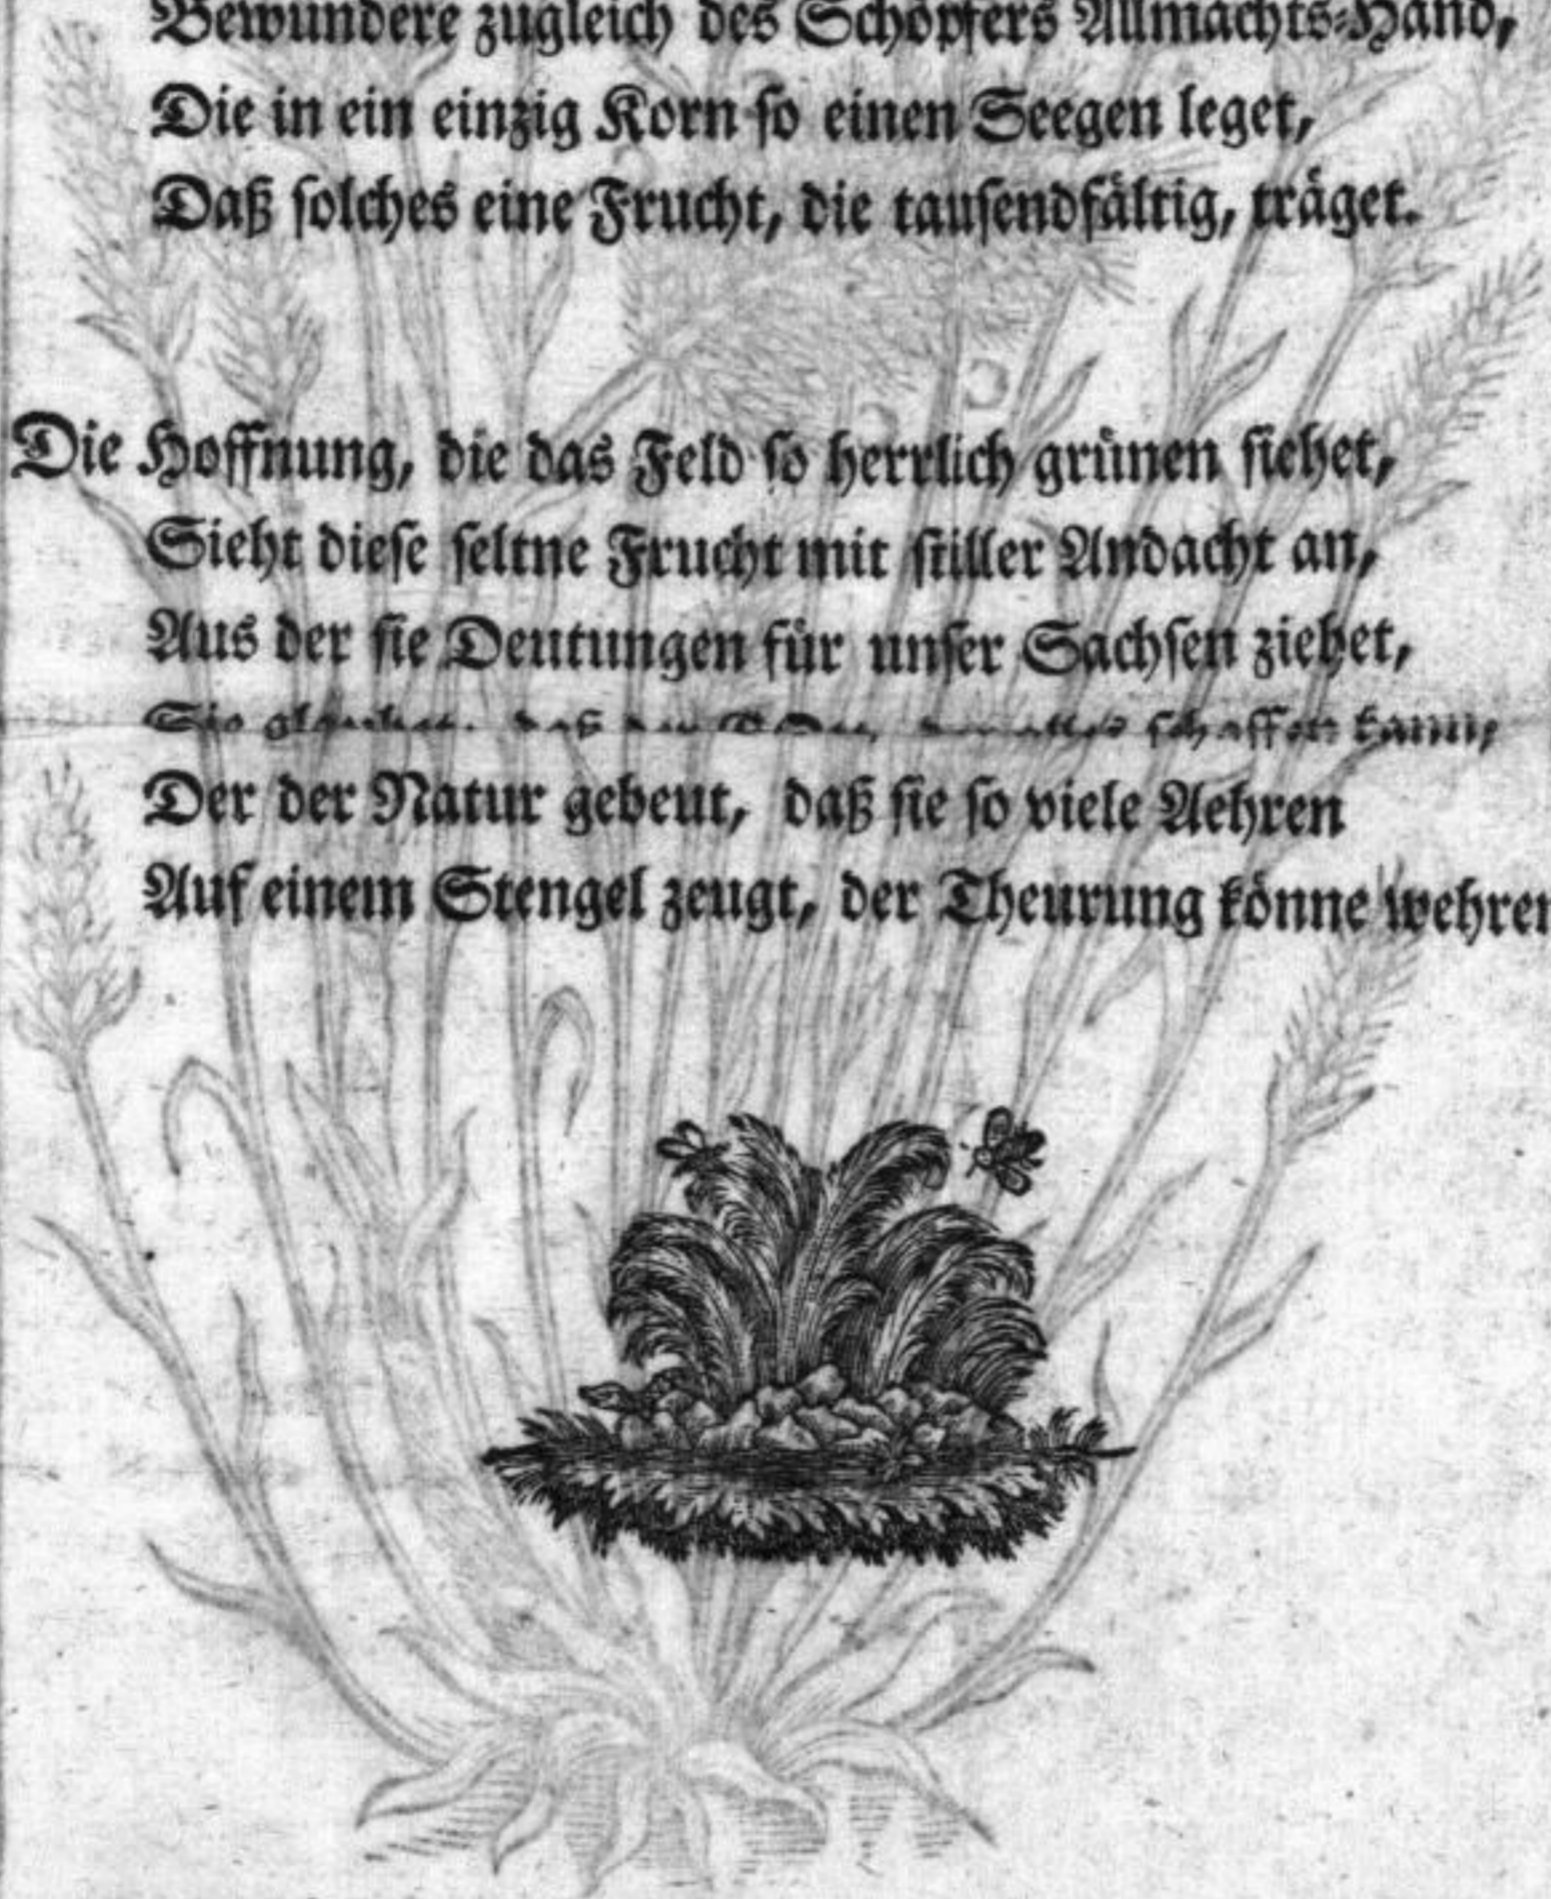 Bewundere zugleich des Schöpfers Allmachts-Hand,
Die in ein einzig Korn so einen Seegen leget,
Daß solches eine Frucht, die tausendfältig, träget.
Die Hoffnung, die das Feld so herrlich grünen siehet,
Sieht diese seltne Frucht mit stiller Andacht an,
Aus der sie Deutungen für unser Sachsen ziehet,
Sie daß schaffen kann,
Der der Natur gebeut, daß sie so viele Aehren
Auf einem Stengel zeugt, der Theurung könne wehren